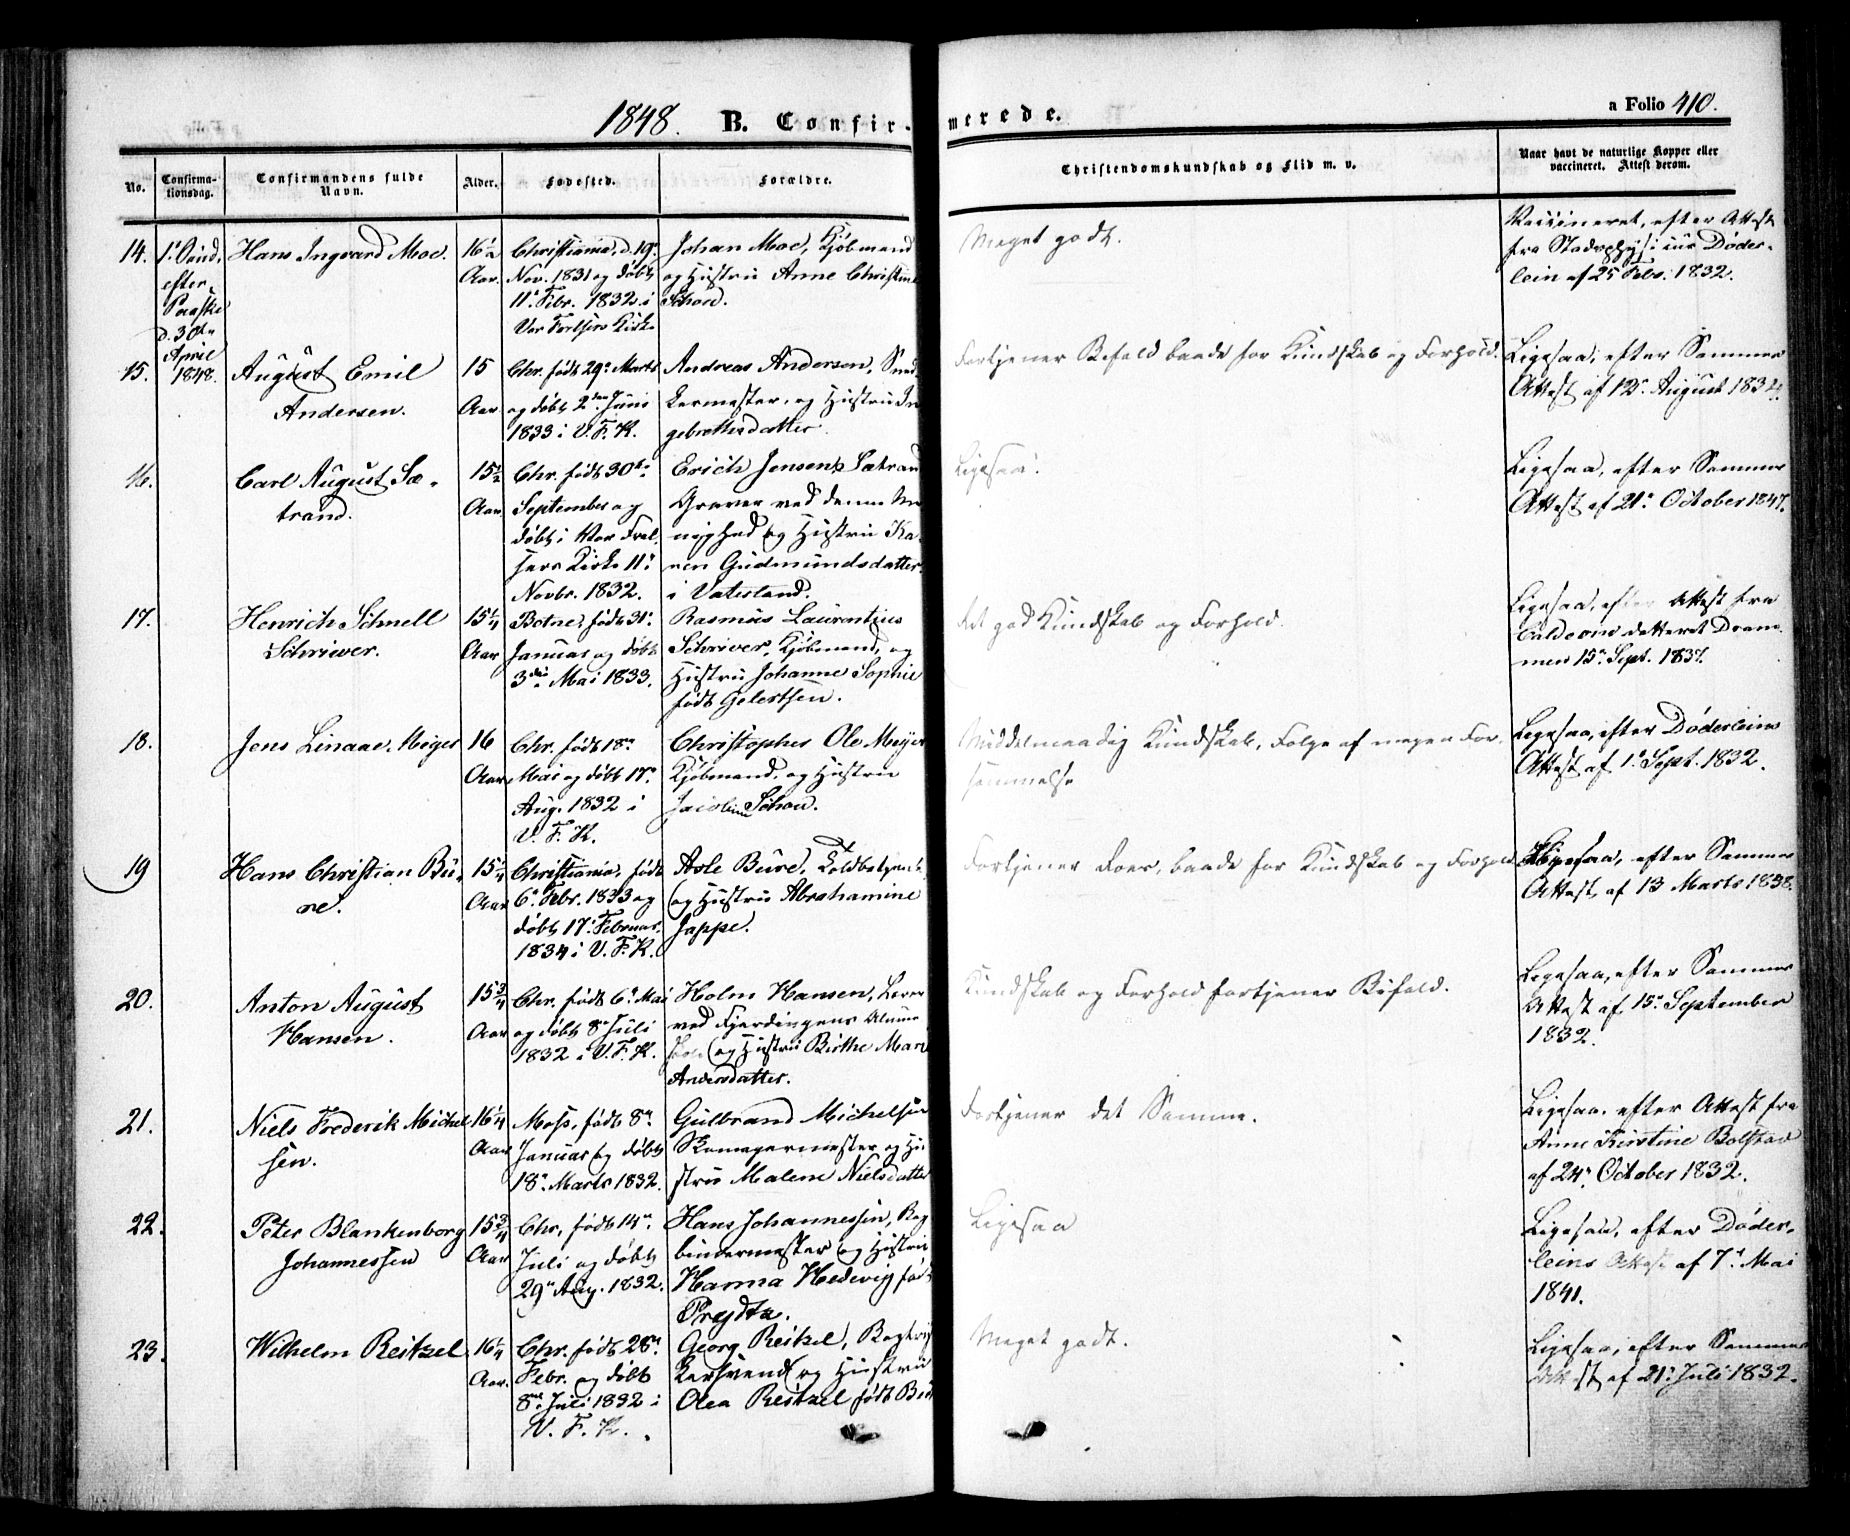 1848. B. Confir-
merede.
a Folio 410.
No.
Confirma-
tionsdag.
Confirmandens fulde
Navn.
Alder.
Fødested.
Forældre.
Christendomskundskab og Flid m. v.
Naar havt de naturlige Kopper eller
vaccineret. Attest derom.
14.
1. Sønd.
efter
Paaske
d. 30te
April
1848.
Hans Ingvard Moe.
16½
Aar.
Christiania, d. 19.
Nov. 1831 og døbt
11. Febr. 1832 i
Vor Frelsers Kirke
Johan Moe, Kjøbmand
og Hustru Anne Christine
Schou.
Meget godt.
Vaccineret, efter Attest
fra Stadsphysicus Døder-
lein af 25 Febr. 1832.
15.
August Emil
Andersen.
15
Aar
Chr. født 29. Marts
og døbt 2den Juni
1833 i V. F. K.
Andreas Andersen, Sned-
kermester, og Hustru In
gebretthsdatter.
Fortjener Bifald baade for Kundskab og Forhold.
Ligesaa, efter Sammes
Attest af 12. August 1834.
16.
Carl August Sæ-
trand.
15½
Aar.
Chr. født 30te
September og
døbt i Vor Frel-
sers Kirke 11.
Novbr. 1832.
Erich Jensen Sætran
Graver ved denne Me
nighed og Hustru Ka-
ren Gudmundsdatter
i Vaterland.
Ligesaa.
Ligesaa, efter Sammes
Attest af 21. October 1847.
17.
Henrich Schnell
Schriwer.
15¼
Aar
Botne, født 31.
Januar og døbt
3die Mai 1833.
Rasmus Laurentius
Schriver, Kjøbmand, og
Hustru Johanne Sophie
født Gelertsen.
det god Kundskab og Forhold.
Ligesaa, efter Attest fra
dateret Dram-
men 15. Sept. 1837.
18.
Jens Linaae Meyer
16
Aar
Chr. født 18.
Mai og døbt 17.
Aug. 1832 i
V. F. K.
Christopher Ole Meyer
Kjøbmand, og Hustru
Jacobine Schou.
Middelmaadig Kundskab, Følge af megen For-
sømmelse
Ligesaa, efter Døderleins
Attest af 1. Sept. 1832.
19
Hans Christian Bu-
re.
15¼
Aar
Christiania, født
6. Febr. 1833 og
døbt 17. Februar
1834 i V. F. K.
Asle Bure, Toldbetjent
og Hustru Abrahamine
Jappe.
Fortjener Roes, baade for Kundskab og Forhold.
Ligesaa, efter Sammes
Attest af 13 Marts 1838.
20.
Anton August
Hansen.
15¾
Aar
Chr. født 6. Mai
og døbt 8. Juli
1832 i V. F. K.
Holm Hansen, Lærer
ved Fjerdingens Almue
skole og Hustru Birthe Mari
Andersdatter.
Kundskab og Forhold fortjener Bifald.
Ligesaa, efter Sammes
Attest af 15. September
1832.
21.
Niels Frederik Michel
sen.
16¼
Aar
Moss, født 8.
Januar og døbt
18. Marts 1832.
Gulbrand Michelsen
Skomagermester og Hu
stru Malene Nielsdatter
Fortjener det Samme.
Ligesaa, efter Attest fra
Anne Kirstine Bolstad
af 24. October 1832.
22.
Peter Blankenborg
Johannessen
15¾
Aar
Chr. født 14.
Juli og døbt
29. Aug. 1832.
Hans Johannessen, Bog
bindermester og Hustru
Hanna Hedevig født
Preydtz.
Ligesaa
Ligesaa, efter Døder-
leins Attest af 7. Mai
1841.
23.
Wilhelm Reitzel
16¼
Aar.
Chr. født 28.
Febr. og døbt
8. Juli 1832 i
V. F. K.
Georg Reitzel, Bogtryk
kersvend og Hustru
Olea Reitzel født
Meget godt.
Ligesaa, efter Sammes
Attest af 21. Juli 1832.